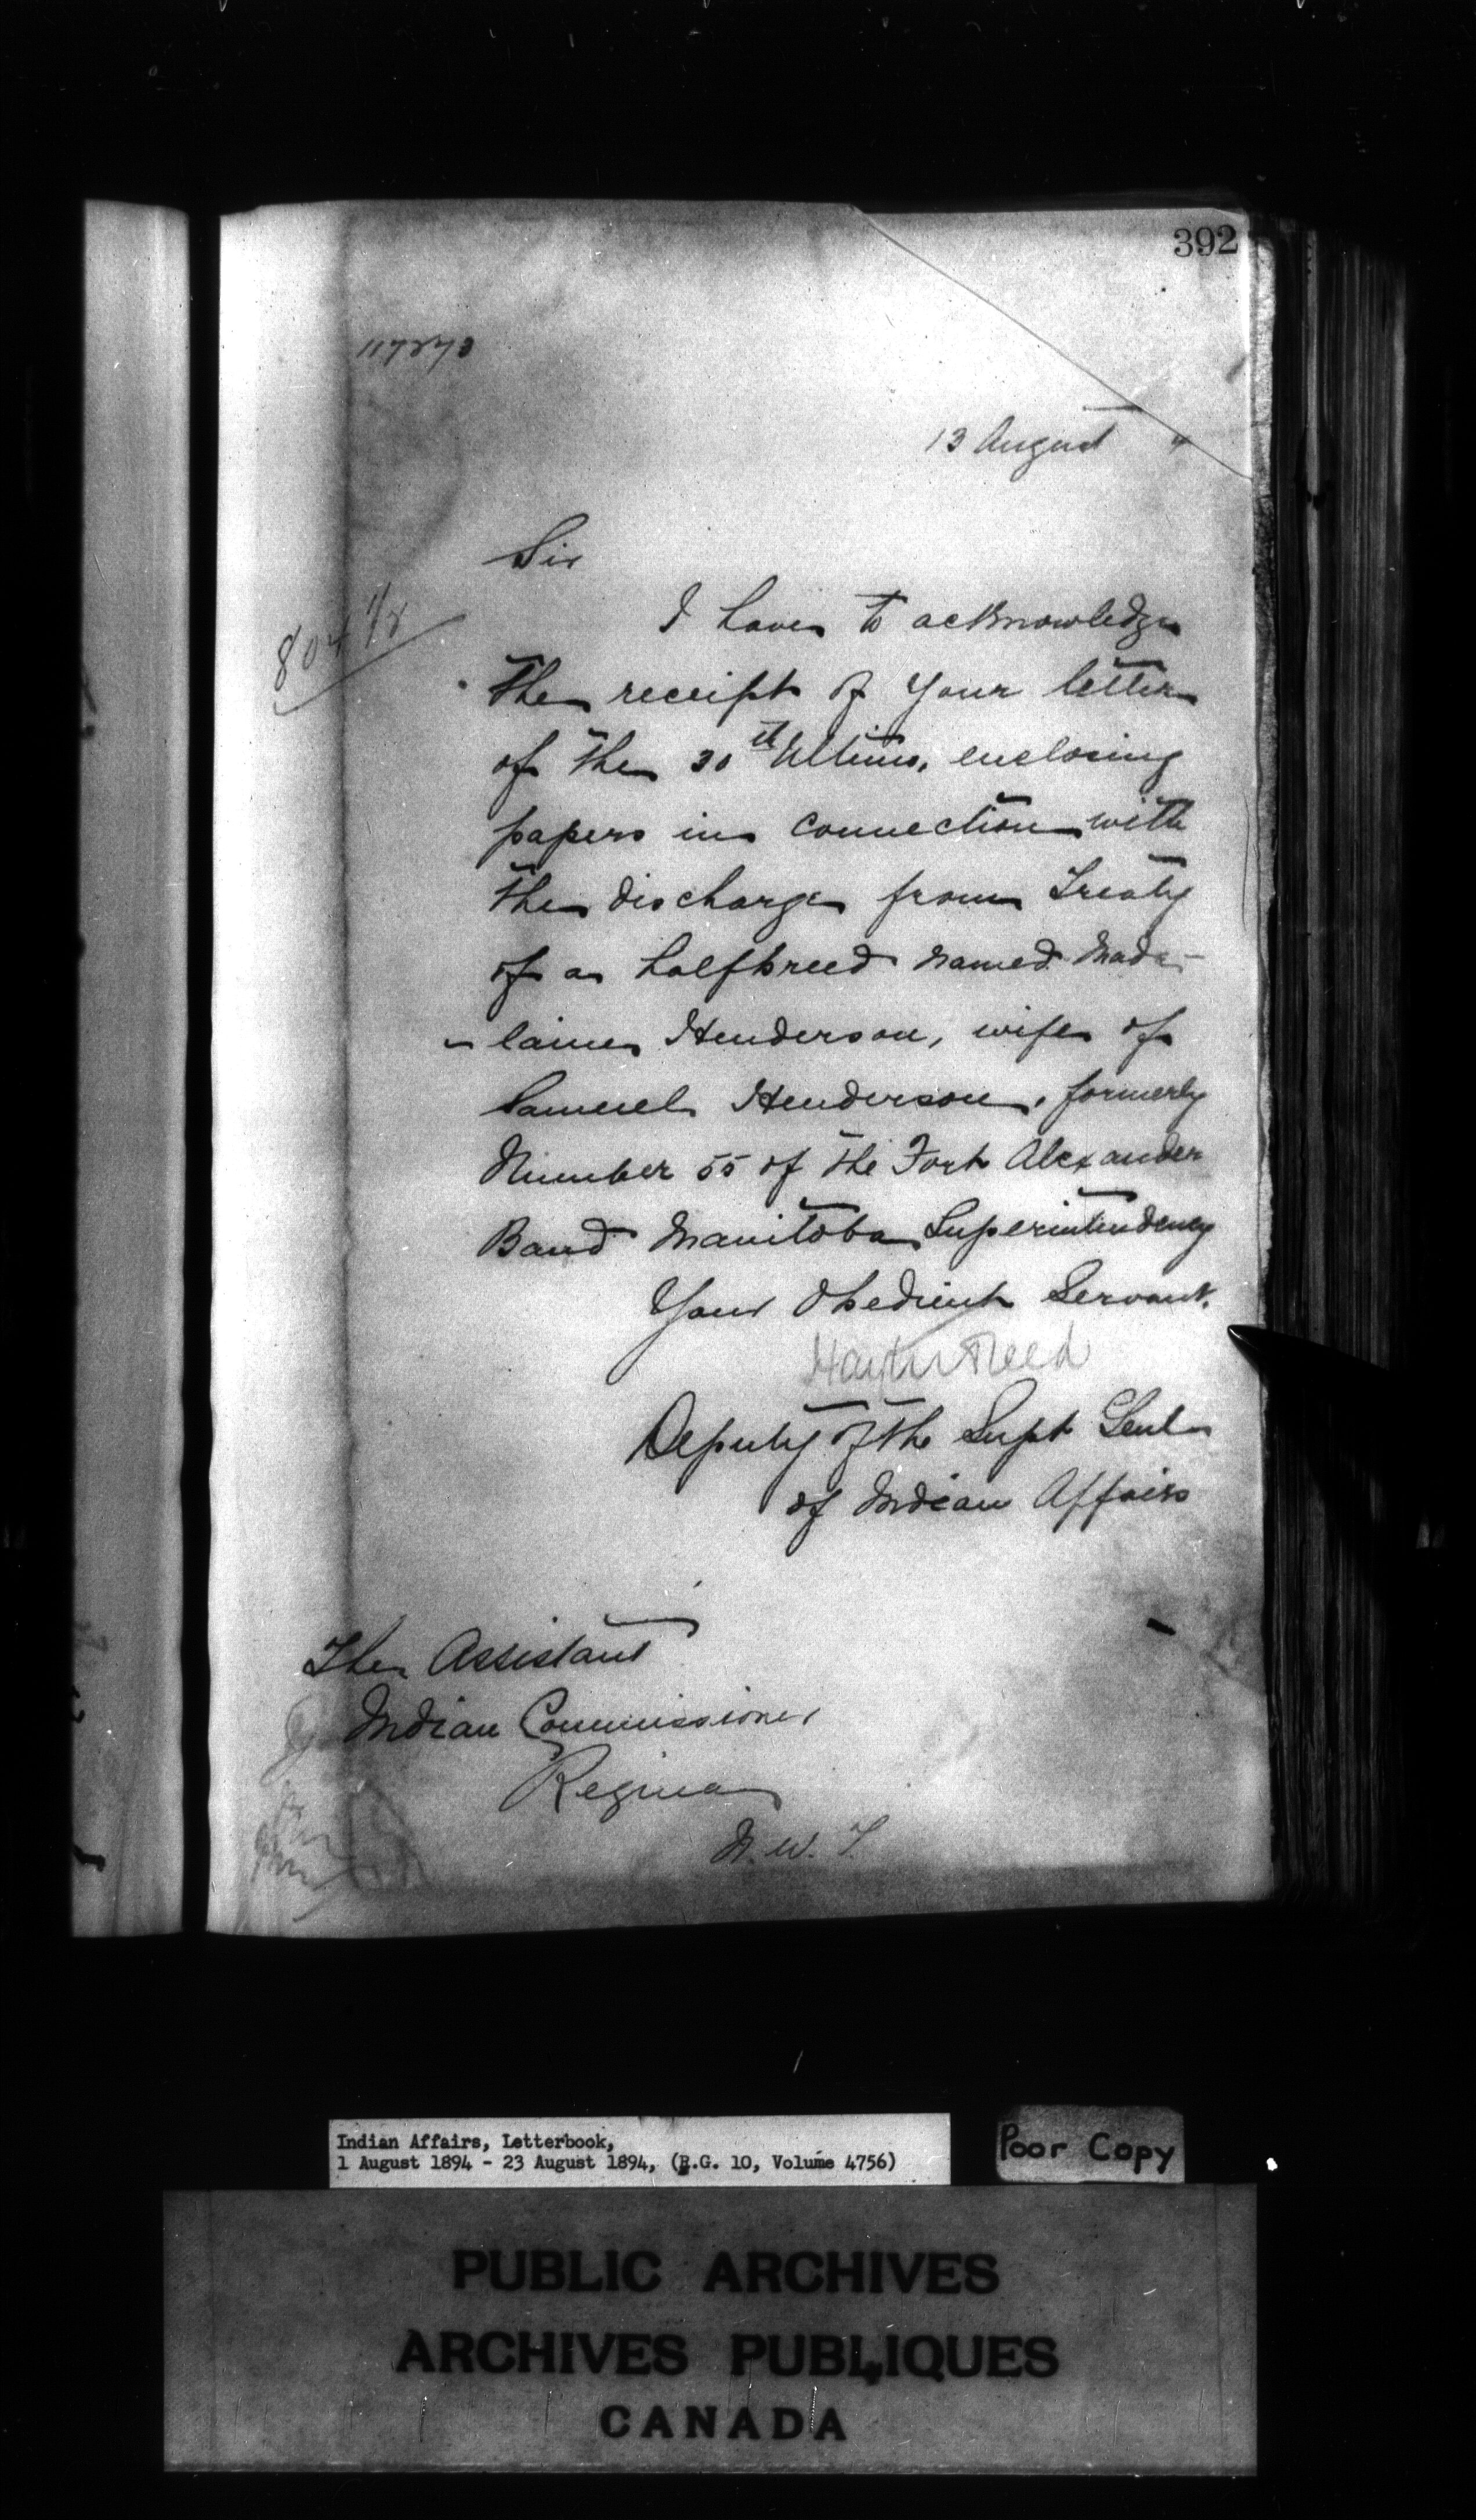 392
117273
13 August 4
Sir
I have to acknowledge
the receipt of your letter
of the 30th Ultimo, enclosing
papers in connection with
the discharge from Treaty
of a halfbreed named Mada-
-laine Henderson, wife of
Samuel Henderson, formerly
Number 55 of the Fort Alexander
Band Manitoba Superintendency
Your Obedient Servant.
Hayter Reed
Deputy of the Supt Genl
of Indian Affairs
The Assistant
Indian Commissioner
Regina
N.W.T.
Indian Affairs, Letterbook,
1 August 1894 - 23 August 1894, (R.G. 10, Volume 4756)
Poor Copy
PUBLIC ARCHIVES
ARCHIVES PUBLIQUES
CANADA